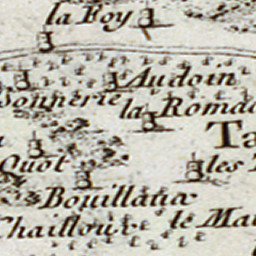 la Foy
Audoin
onnerie la Roma
Ta
Quot les
Bouillaux
Chaillou le Ma